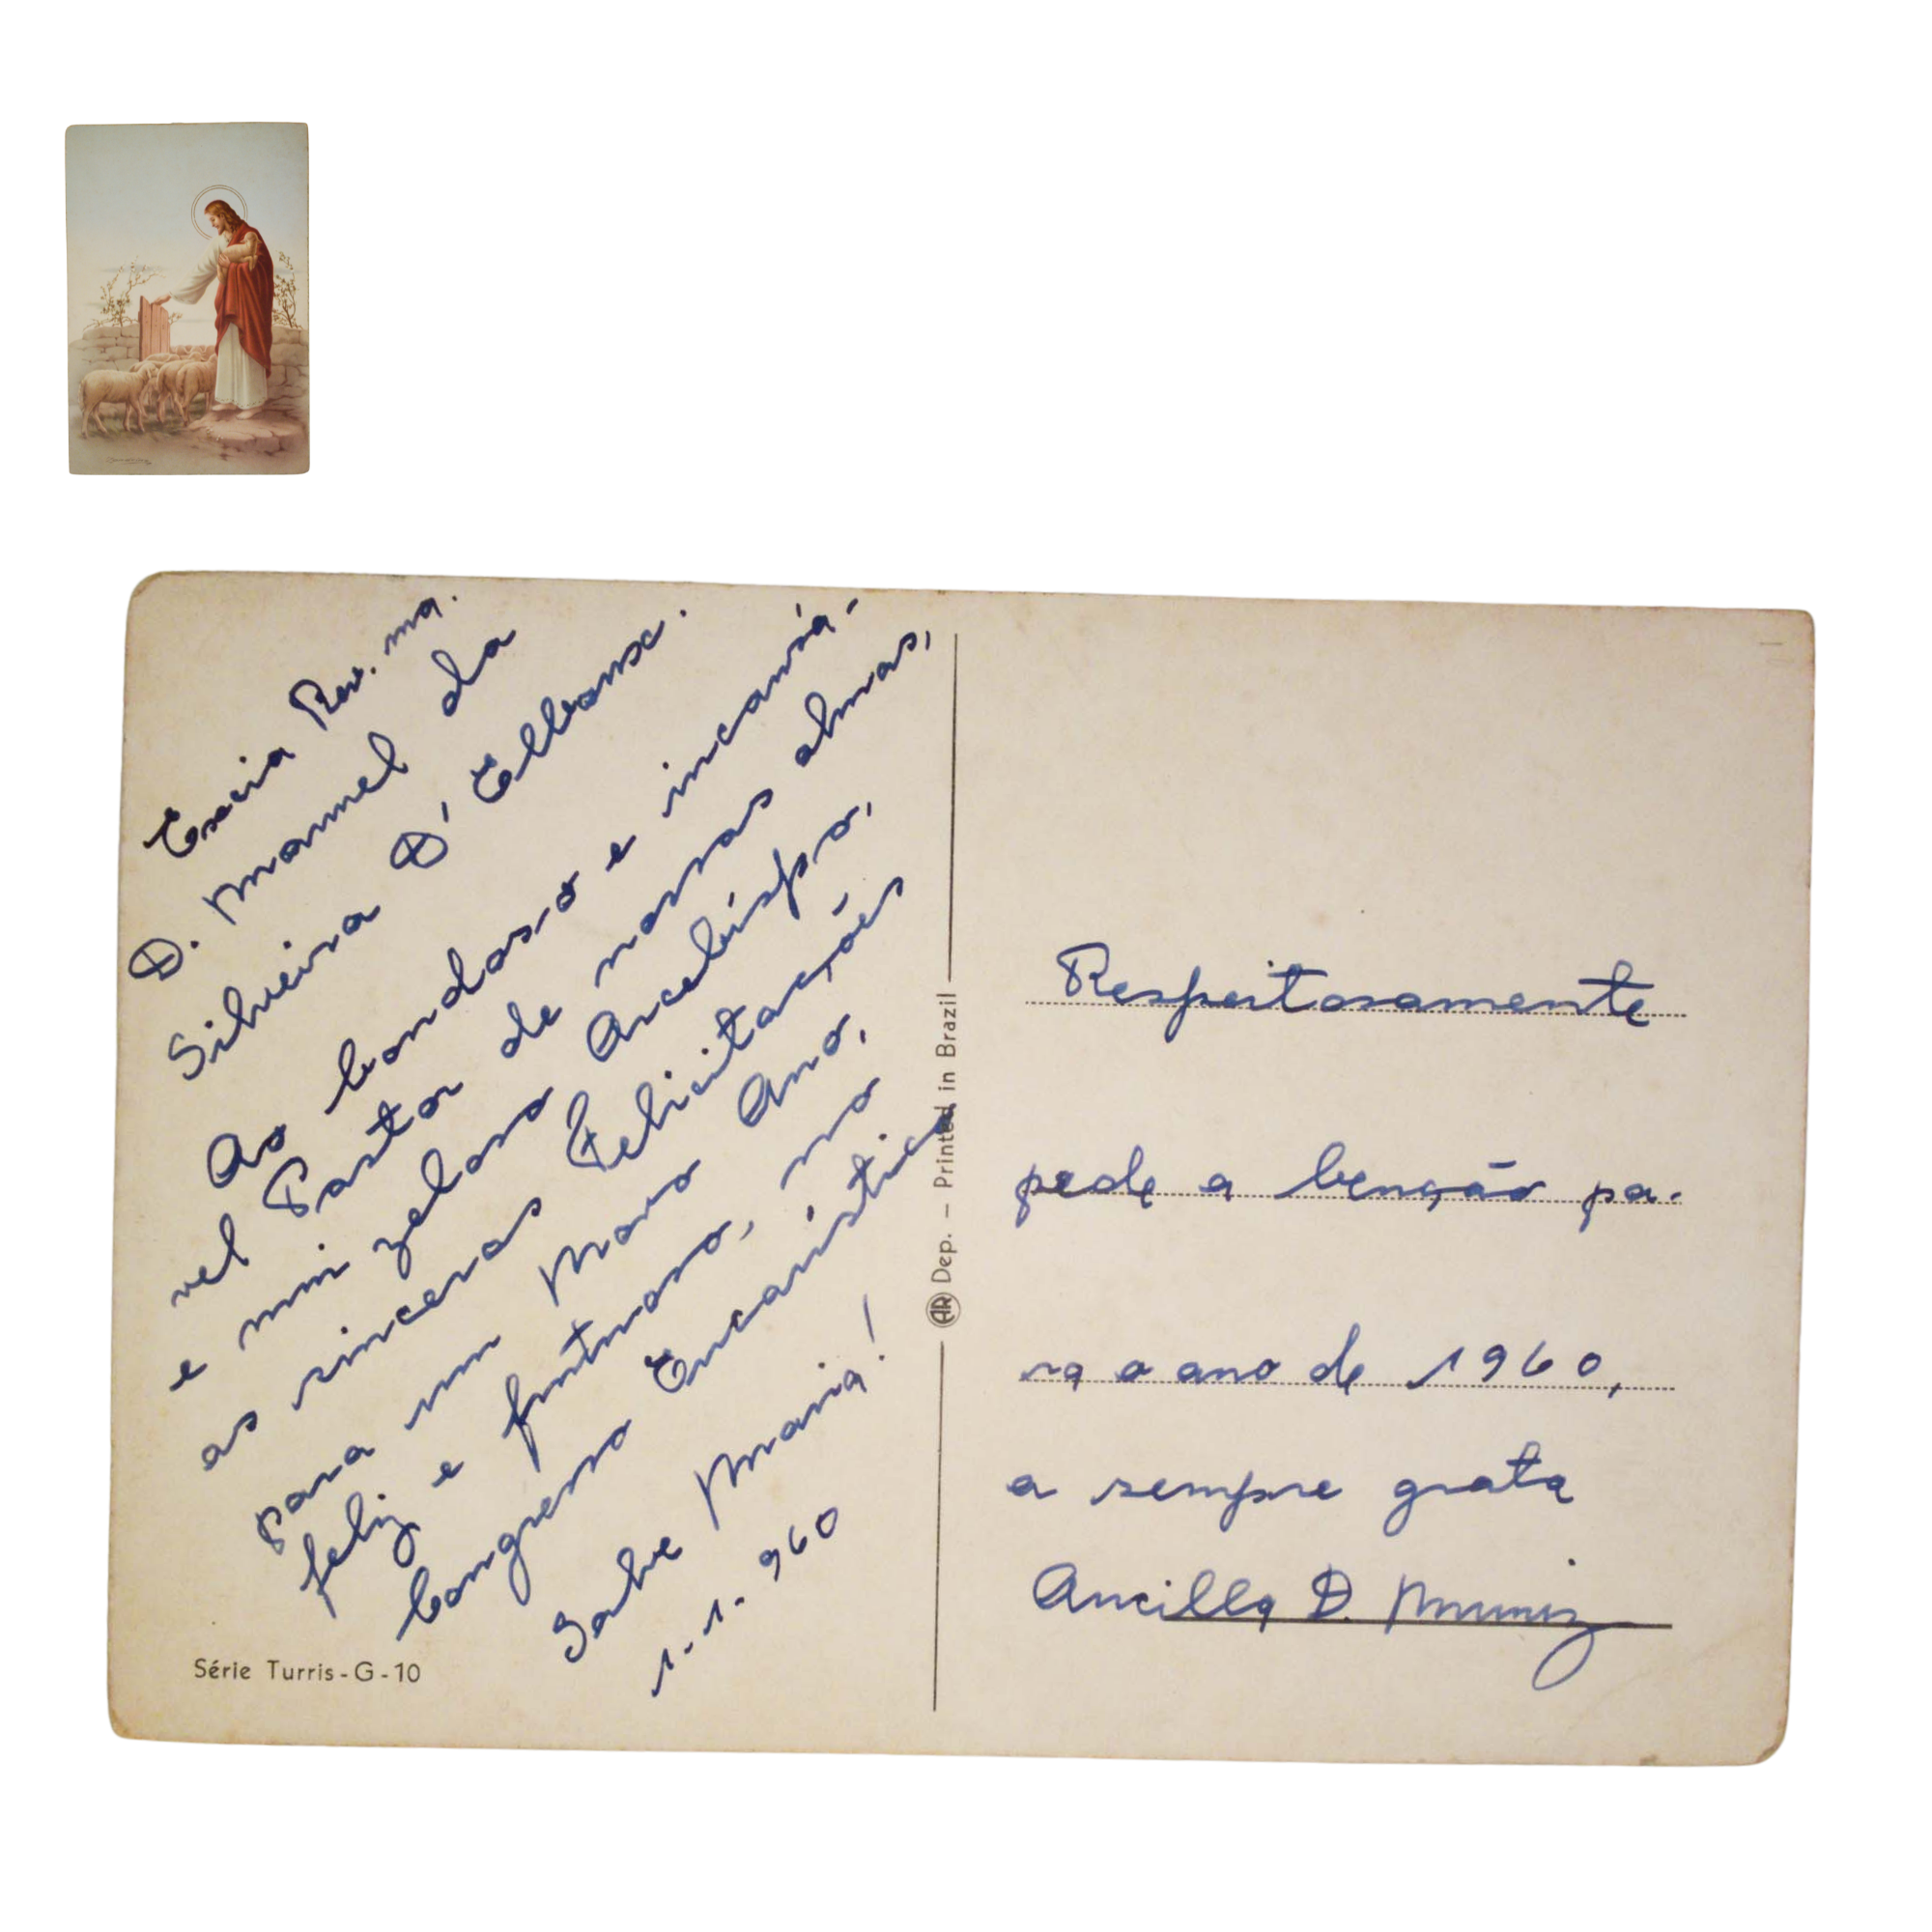 Excia Rev. ma.
D. Manuel da
Silveira D' Elboux.
Ao bondoso e incansá-
vel Pastor de nossas almas,
e mui zeloso Arcebispo,
as sinceras Felicitações
para um Novo Ano,
feliz e frutuoso, no
Congresso Eucarístico.
Salve Maria!
1-1-960
Série Turris-G-10
AR Dep. – Printed in Brazil
Respeitosamente
pede a benção pa-
ra o ano de 1960,
a sempre grata
Ancilla D. Muniz